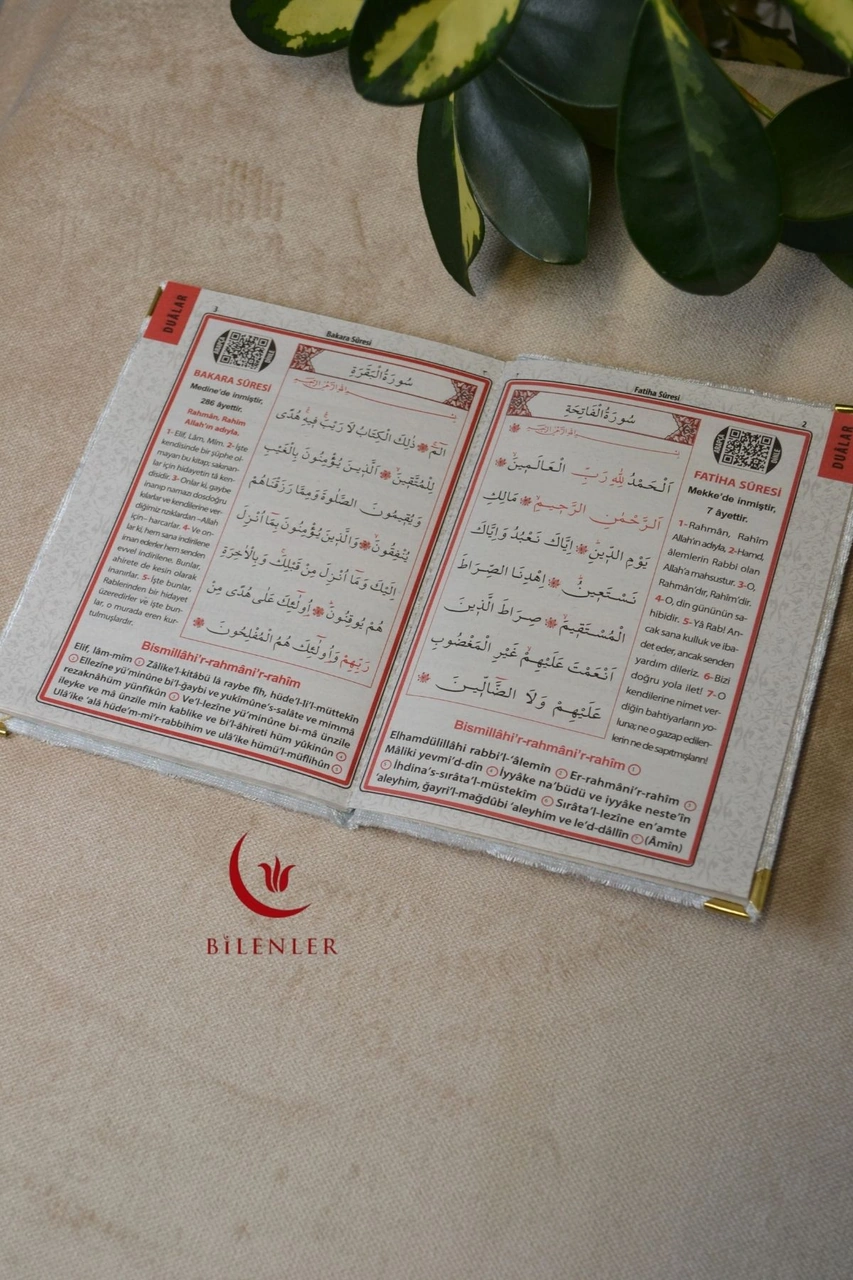 2
Fatiha Sûresi
DUÂLAR
سُورَةُ الْفَاتِحَةِ
اَلْحَمْدُ لِلّٰهِ رَبِّ الْعَالَمِينَ
اَلرَّحْمٰنِ الرَّحِيمِ مَالِكِ
يَوْمِ الدِّينِ اِيَّاكَ نَعْبُدُ وَاِيَّاكَ
نَسْتَعِينُ اِهْدِنَا الصِّرَاطَ
الْمُسْتَقِيمَ صِرَاطَ الَّذِينَ
اَنْعَمْتَ عَلَيْهِمْ غَيْرِ الْمَغْضُوبِ
عَلَيْهِمْ وَلَا الضَّالِّينَ
FATİHA SÛRESİ
Mekke'de inmiştir,
7 âyettir.
1- Rahmân, Rahîm
Allah'ın adıyla, 2-Hamd,
âlemlerin Rabbi olan
Allah'a mahsustur. 3-O,
Rahmân'dır, Rahîm'dir.
4-O, din gününün sa-
hibidir. 5- Yâ Rab! An-
cak sana kulluk ve iba-
det eder, ancak senden
yardım dileriz. 6- Bizi
doğru yola ilet! 7-O
kendilerine nimet ver-
diğin bahtiyarların yo-
luna; ne o gazap edilen-
lerin ne de sapıtmışların!
Bismillâhi'r-rahmâni'r-rahîm
Elhamdülillâhi rabbi'l-'âlemîn Er-rahmâni'r-rahîm
Mâliki yevmi'd-dîn İyyâke na'büdü ve iyyâke neste'în
İhdina's-sırâta'l-müstekîm Sırâta'l-lezîne en'amte
'aleyhim, ğayri'l-mağdûbi 'aleyhim ve le'd-dâllîn (Âmîn)
3
Bakara Sûresi
DUÂLAR
سُورَةُ الْبَقَرَةِ
الٓمٓ ذٰلِكَ الْكِتَابُ لَا رَيْبَ فِيهِ هُدًى
لِلْمُتَّقِينَ اَلَّذِينَ يُؤْمِنُونَ بِالْغَيْبِ
وَيُقِيمُونَ الصَّلٰوةَ وَمِمَّا رَزَقْنَاهُمْ
يُنْفِقُونَ وَالَّذِينَ يُؤْمِنُونَ بِمَٓا اُنْزِلَ
اِلَيْكَ وَمَٓا اُنْزِلَ مِنْ قَبْلِكَ وَبِالْاٰخِرَةِ
هُمْ يُوقِنُونَ اُو۬لٰٓئِكَ عَلٰى هُدًى مِنْ
رَبِّهِمْ وَاُو۬لٰٓئِكَ هُمُ الْمُفْلِحُونَ
BAKARA SÛRESİ
Medine'de inmiştir,
286 âyettir.
Rahmân, Rahîm
Allah'ın adıyla.
1- Elif, Lâm, Mîm. 2- İşte
kendisinde bir şüphe ol-
mayan bu kitap; sakınan-
lar için hidayetin tâ ken-
disidir. 3-Onlar ki, gaybe
inanıp namazı dosdoğru
kılarlar ve kendilerine ver-
diğimiz rızıklardan –Allah
için– harcarlar. 4- Ve on-
lar ki, hem sana indirilene
iman ederler hem senden
evvel indirilene. Bunlar,
ahirete de kesin olarak
inanırlar. 5- İşte bunlar,
Rablerinden bir hidayet
üzeredirler ve işte bun-
lar, o murada eren kur-
tulmuşlardır.
Bismillâhi'r-rahmâni'r-rahîm
Elif, lâm-mîm Zâlike'l-kitâbü lâ raybe fîh, hüde'l-li'l-müttekîn
Ellezîne yü'minûne bi'l-ğaybi ve yukîmûne's-salâte ve mimmâ
rezaknâhüm yünfikûn Ve'l-lezîne yü'minûne bi-mâ ünzile
ileyke ve mâ ünzile min kablike ve bi'l-âhireti hüm yûkinûn
Ulâ'ike 'alâ hüde'm-mi'r-rabbihim ve ulâ'ike hümü'l-müflihûn
BİLENLER